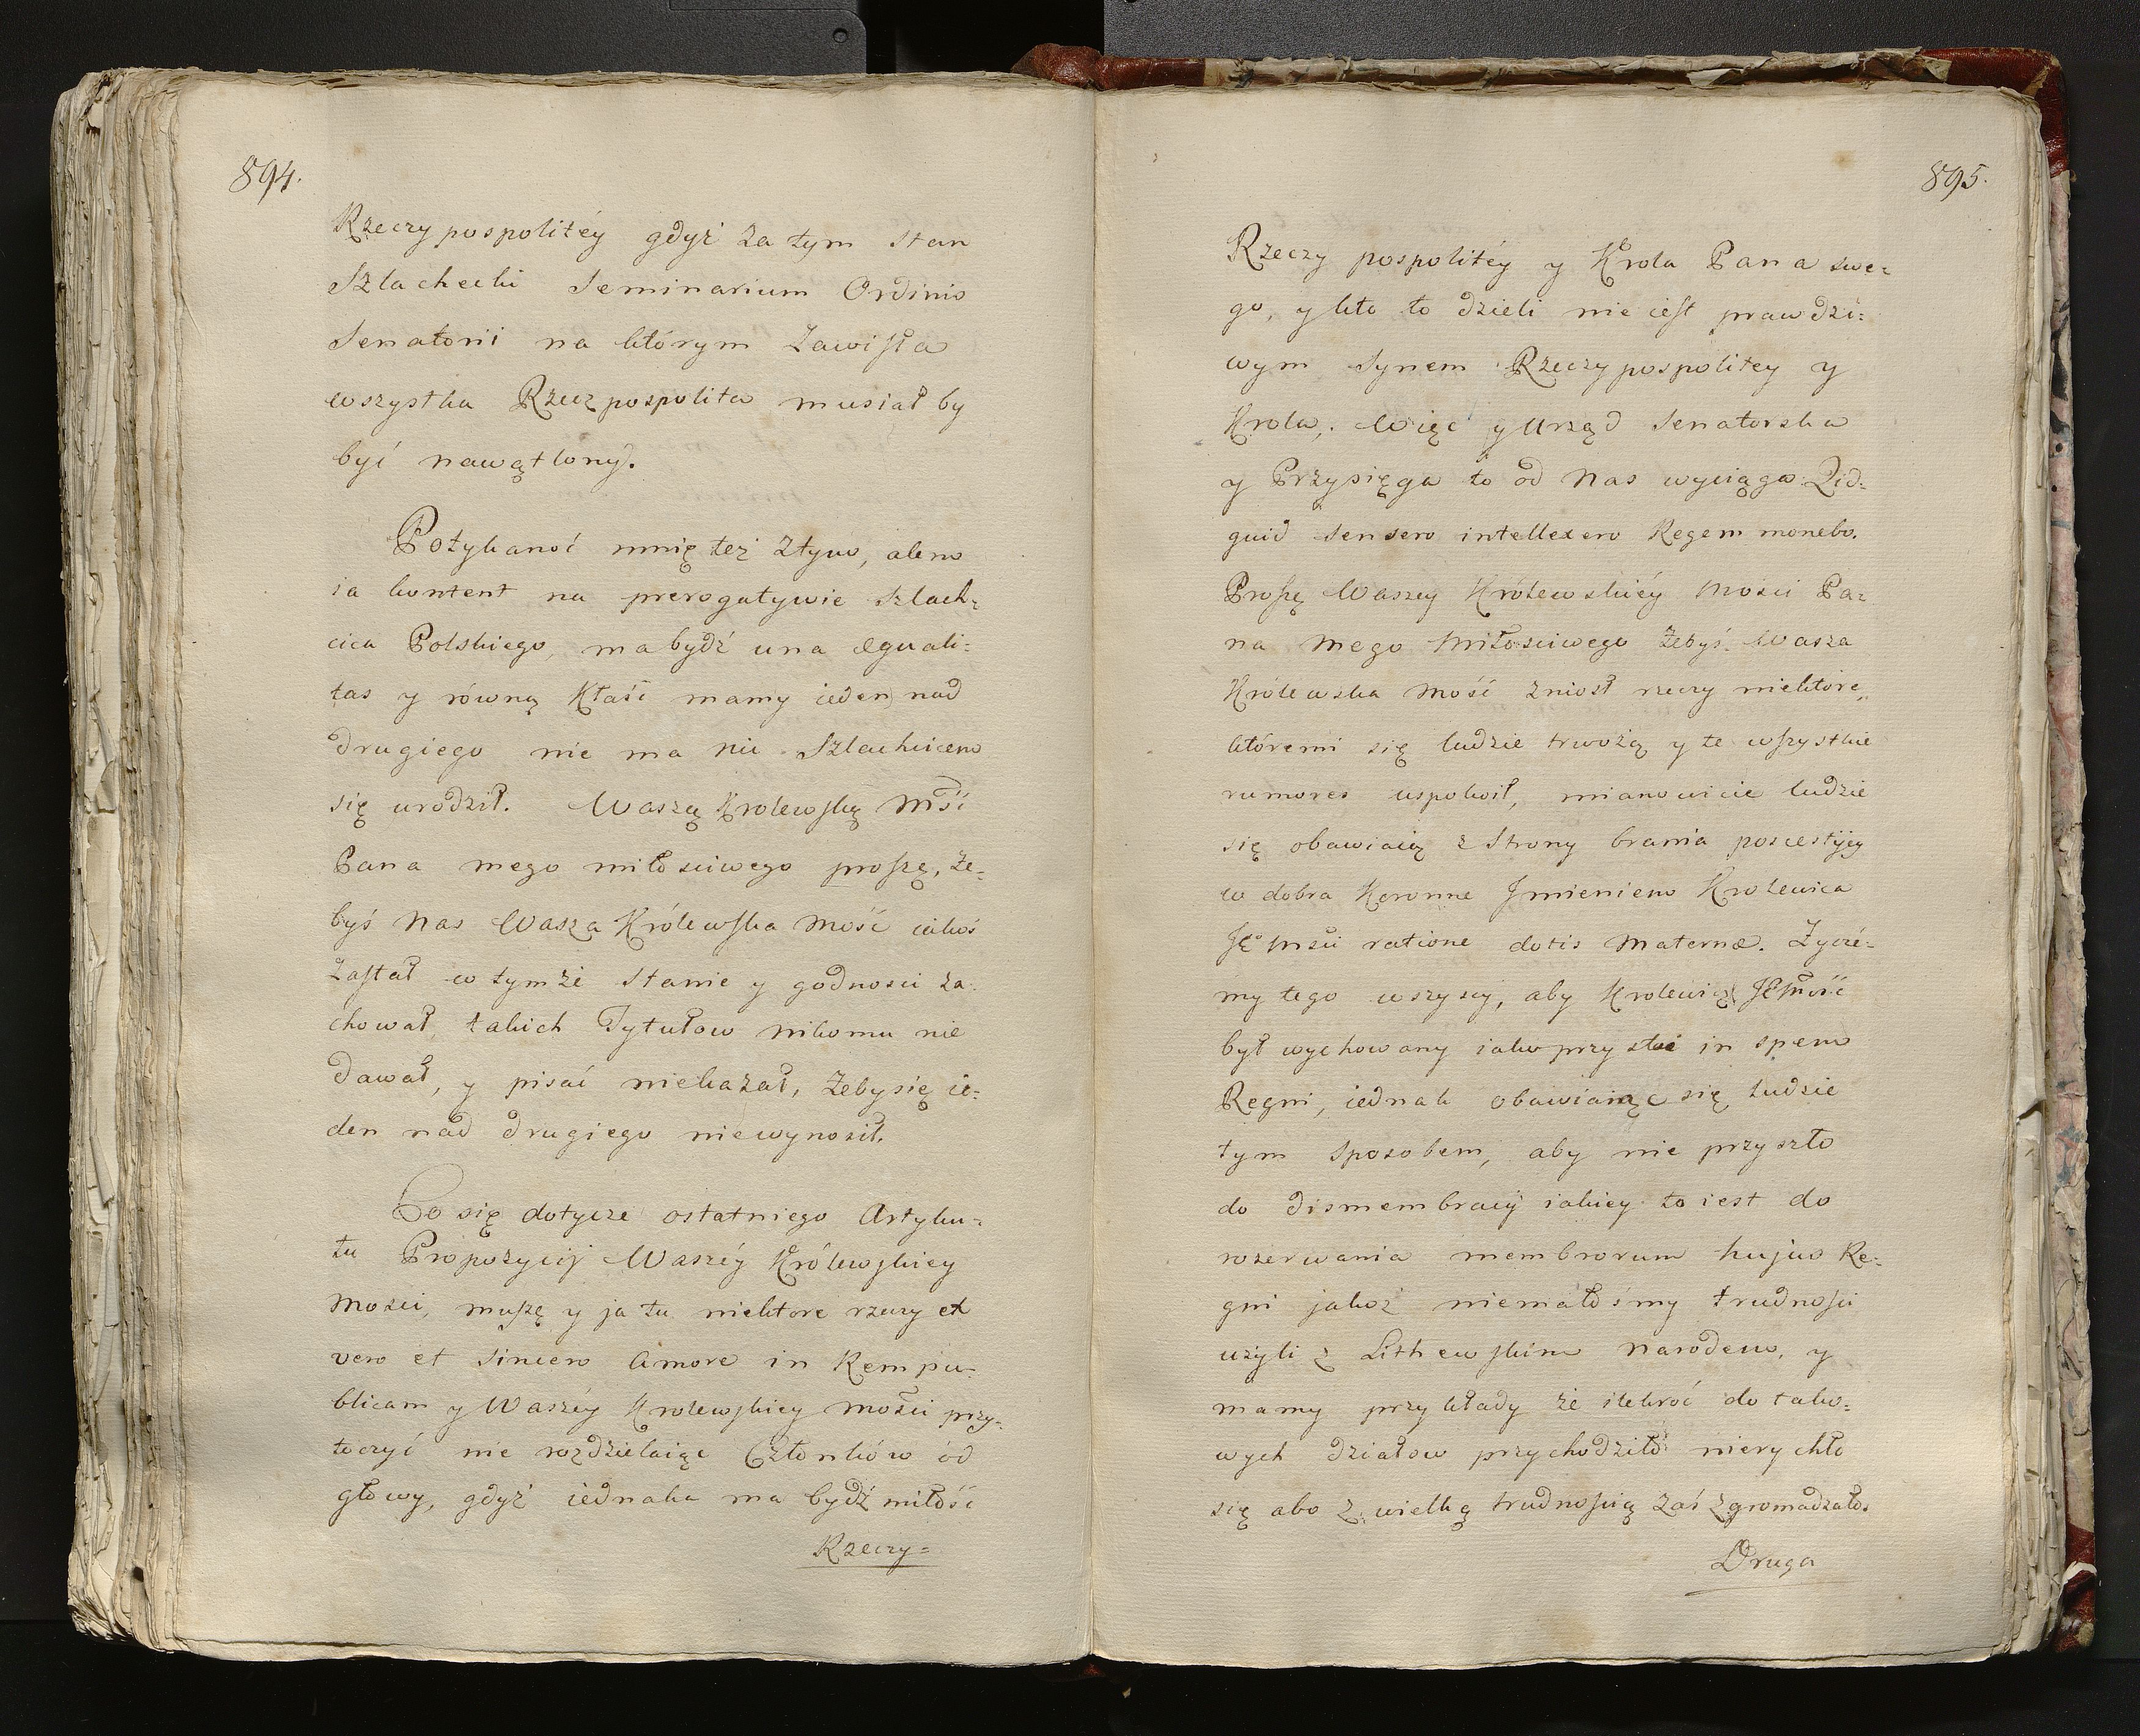 894.
Rzeczypospolitéy gdyż za tym stan
Szlachecki Seminarium Ordinis
Senatorii na którym zawisła
wszystka Rzeczpospolita musiał by
być nawątlony.
Potykanoć mnię też ztym, alem
ia kontent na prerogatywie szlach=
cica Polskiego, ma bydź una æquali=
tas y równą Kłaść mamy ieden nad
drugiego nie ma nic Szlachcicem
się urodził. Waszą Krolewską Mść
Pana mego miłosciwego proszę, że=
byś Nas Wasza Królewska Mość iakoś
zastał w tymże stanie y godnosci za=
chował, takich Tytułow nikomu nie
dawał, y pisać niekazał, żeby się ie=
den nad drugiego niewynosił.
Co się dotycze ostatniego Artyku=
łu Propozycij Waszéy Królewskiey
Mosci, muszę y ja tu niektore rzeczy ex
vero et sincero Amore in Rempu=
blicam y Waszéy Krolewskiey Mości przy=
toczyć nie rozdzielaiąc Członków od
głowy, gdyż iednaka ma bydź miłość
Rzeczy=
895.
Rzeczy pospolitéy y Krola Pana swe=
go, y kto to dzieli nie iest prawdzi=
wym Synem Rzeczypospolitey y
Krola, Więc y Urząd Senatorska
y Przysięga to od Nas wyciąga Qid=
quid sensero intellexero Regem monebo.
Proszę Waszey Królewskiéy Mosci Pa=
na Mego Miłosciwego żebyś Wasza
Królewska Mość zniosł rzeczy niektore,
któremi się ludzie trwożą y te wszystkie
rumores uspokoił, mianowicie ludzie
się obawiaią z Strony brania poscestyey
w dobra Koronne Jmieniem Krolewica
JE Mści ratione dotis Maternæ. Zycze=
my tego wszyscy, aby Krolewicz JEMość
był wychowany iako przystoi in spem
Regni, iednak obawiaiąc się ludzie
tym sposobem, aby nie przyszło
do dismembracij iakiey to iest do
rozerwania membrorum hujus Re=
gni jakoż niemáłośmy trudnosci
użyli z Lithewskim Narodem, y
mamy przykłady że ilekroć do tako=
wych działow przychodziło nierychło
się abo z wielką trudnością zaś zgromadzało.
Druga